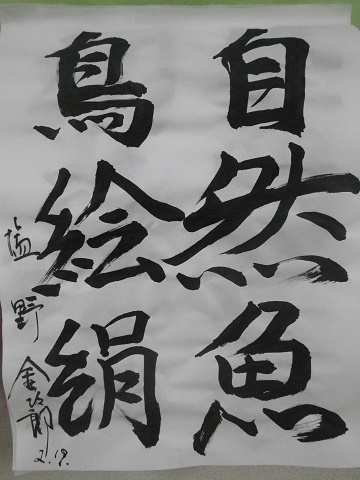 自然魚
鳥絵絹
塩野金次郎
2.19.